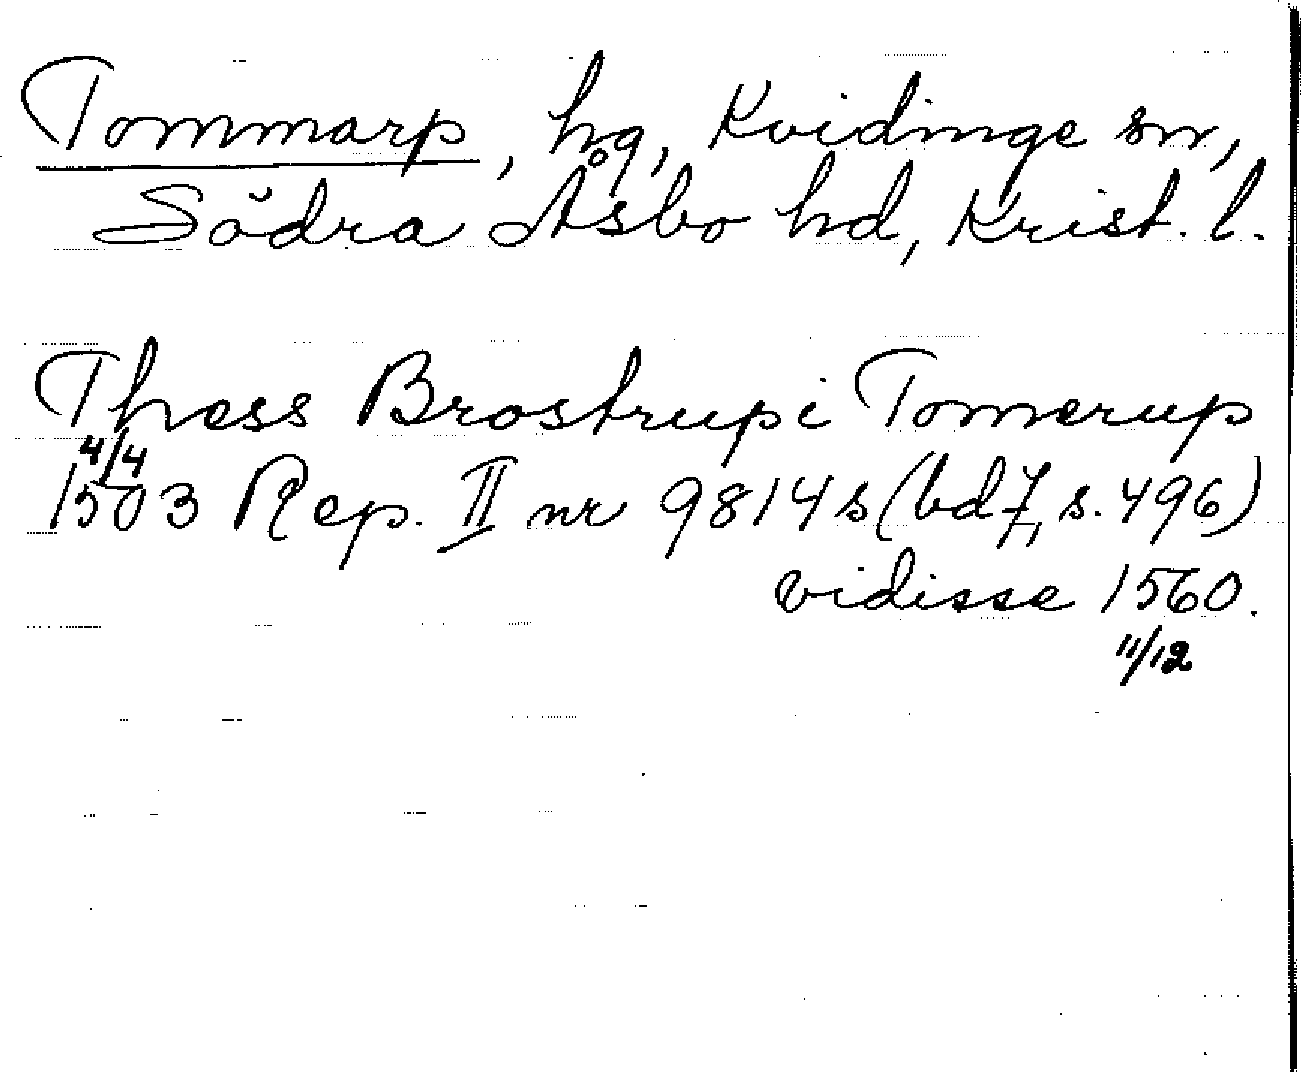 Tommarp, hg, Kvidinge sn,
Södra Åsbo hd, Krist. l.
Thess Brostrup i Tomerup
4/4
1503 Rep. II nr 9814 s (bd 7, s. 496)
vidisse 1560.
11/12